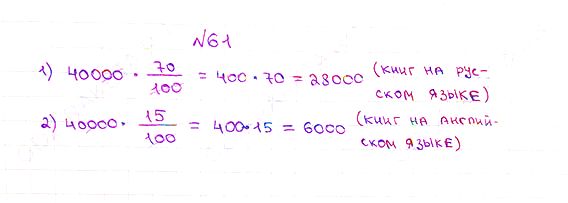 №61
1) 40000 · 70/100 = 400 · 70 = 28000 (книг на рус-
ском языке)
2) 40000 · 15/100 = 400·15 = 6000 (книг на англий-
ском языке)